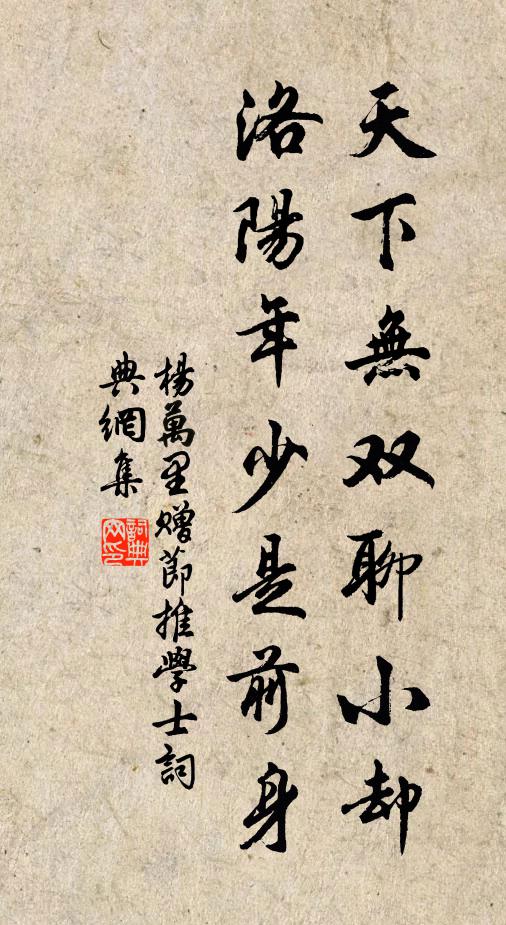 天下無双聊小却
洛陽年少是前身
楊萬里贈節推學士詞
典網集
詞典網印